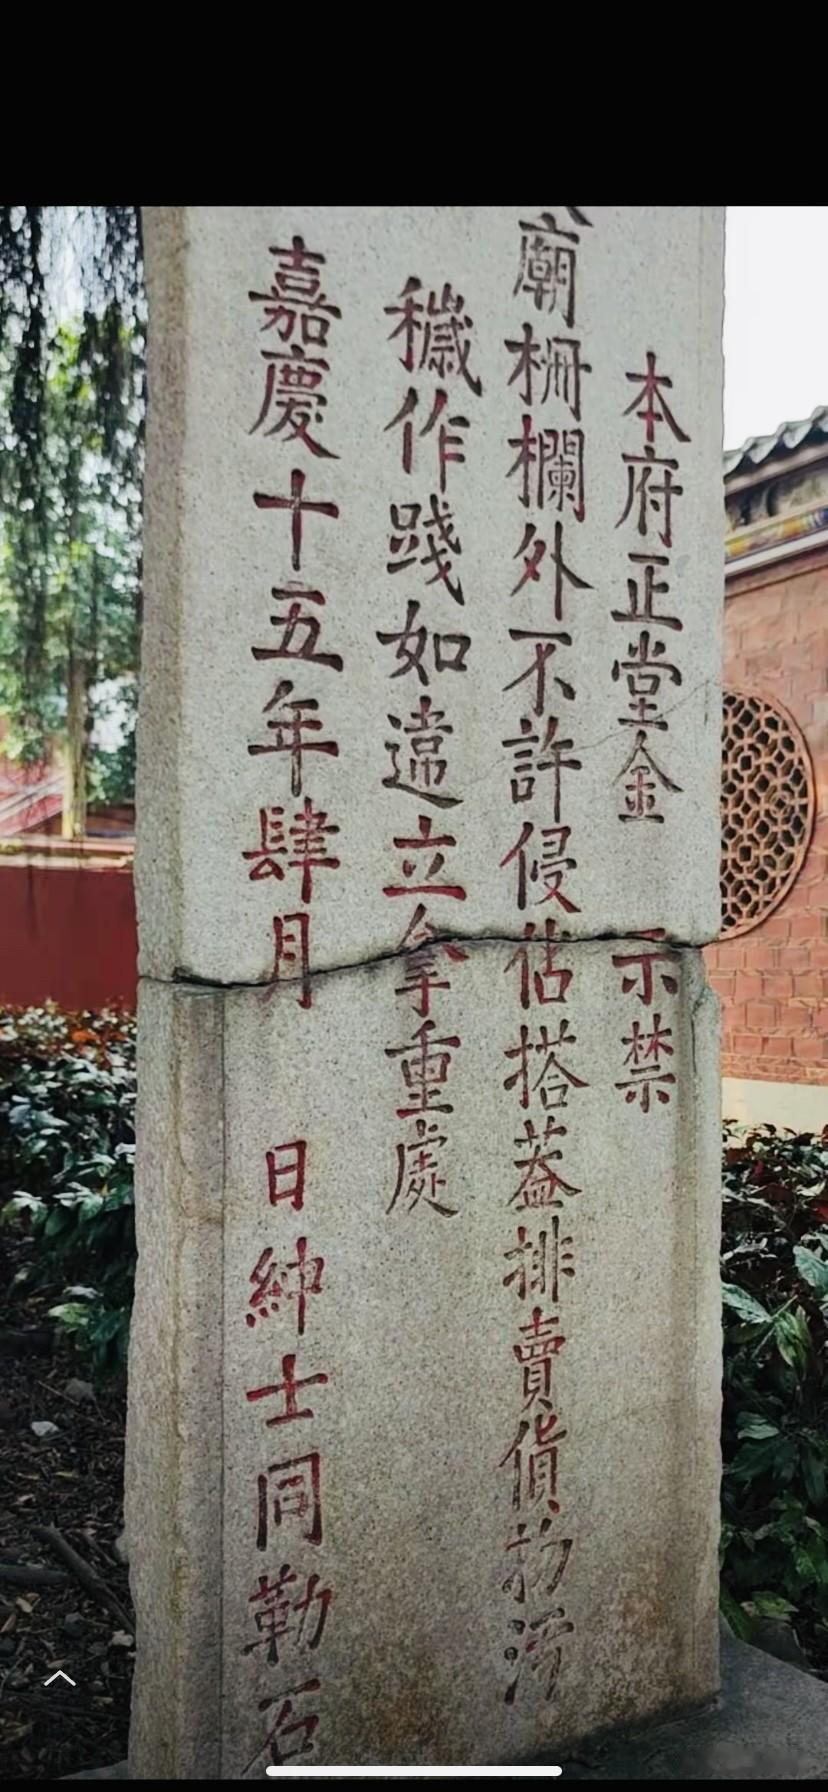 本府正堂金 示禁
廟柵欄外不許侵佔搭蓋排賣貨物滛
穢作踐如違立拿重處
嘉慶十五年肆月 日紳士同勒石